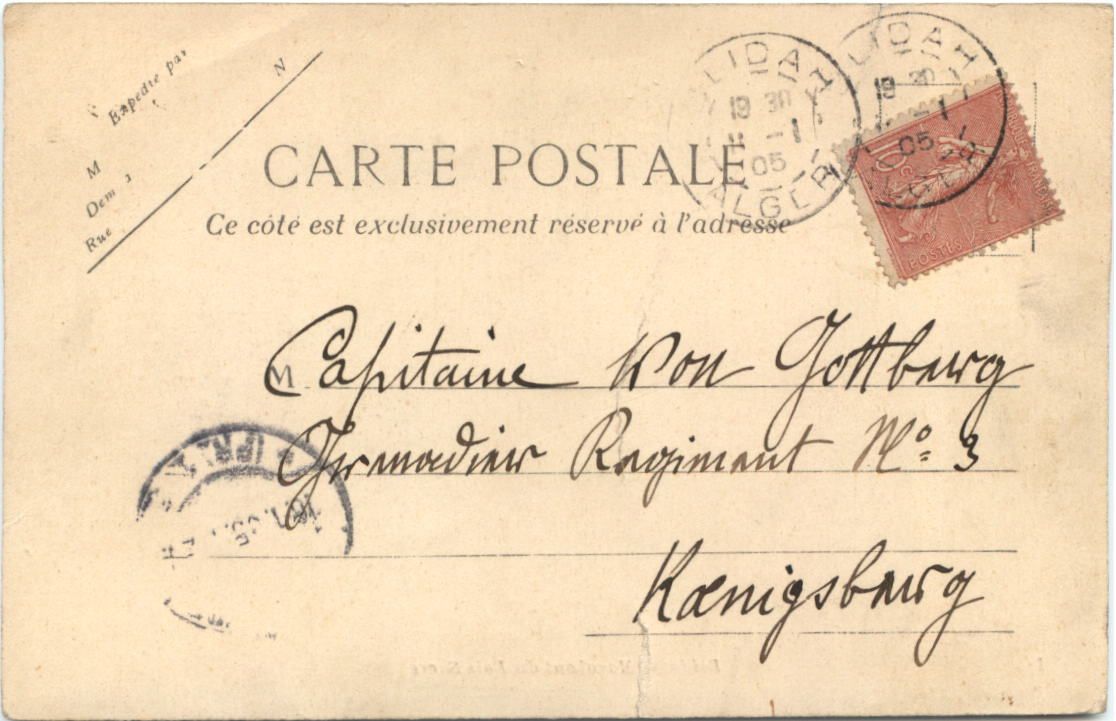 Expédié par
M
N
Dem
Rue
CARTE POSTALE
Ce côté est exclusivement réservé à l'adresse
LIDAH
19 30
11 -1
05
ALGER
LIDAH
19 30
-1
05
10c
POSTES
M Capitaine Von Gottberg
Grenadier Regiment No 3
Kœnigsberg